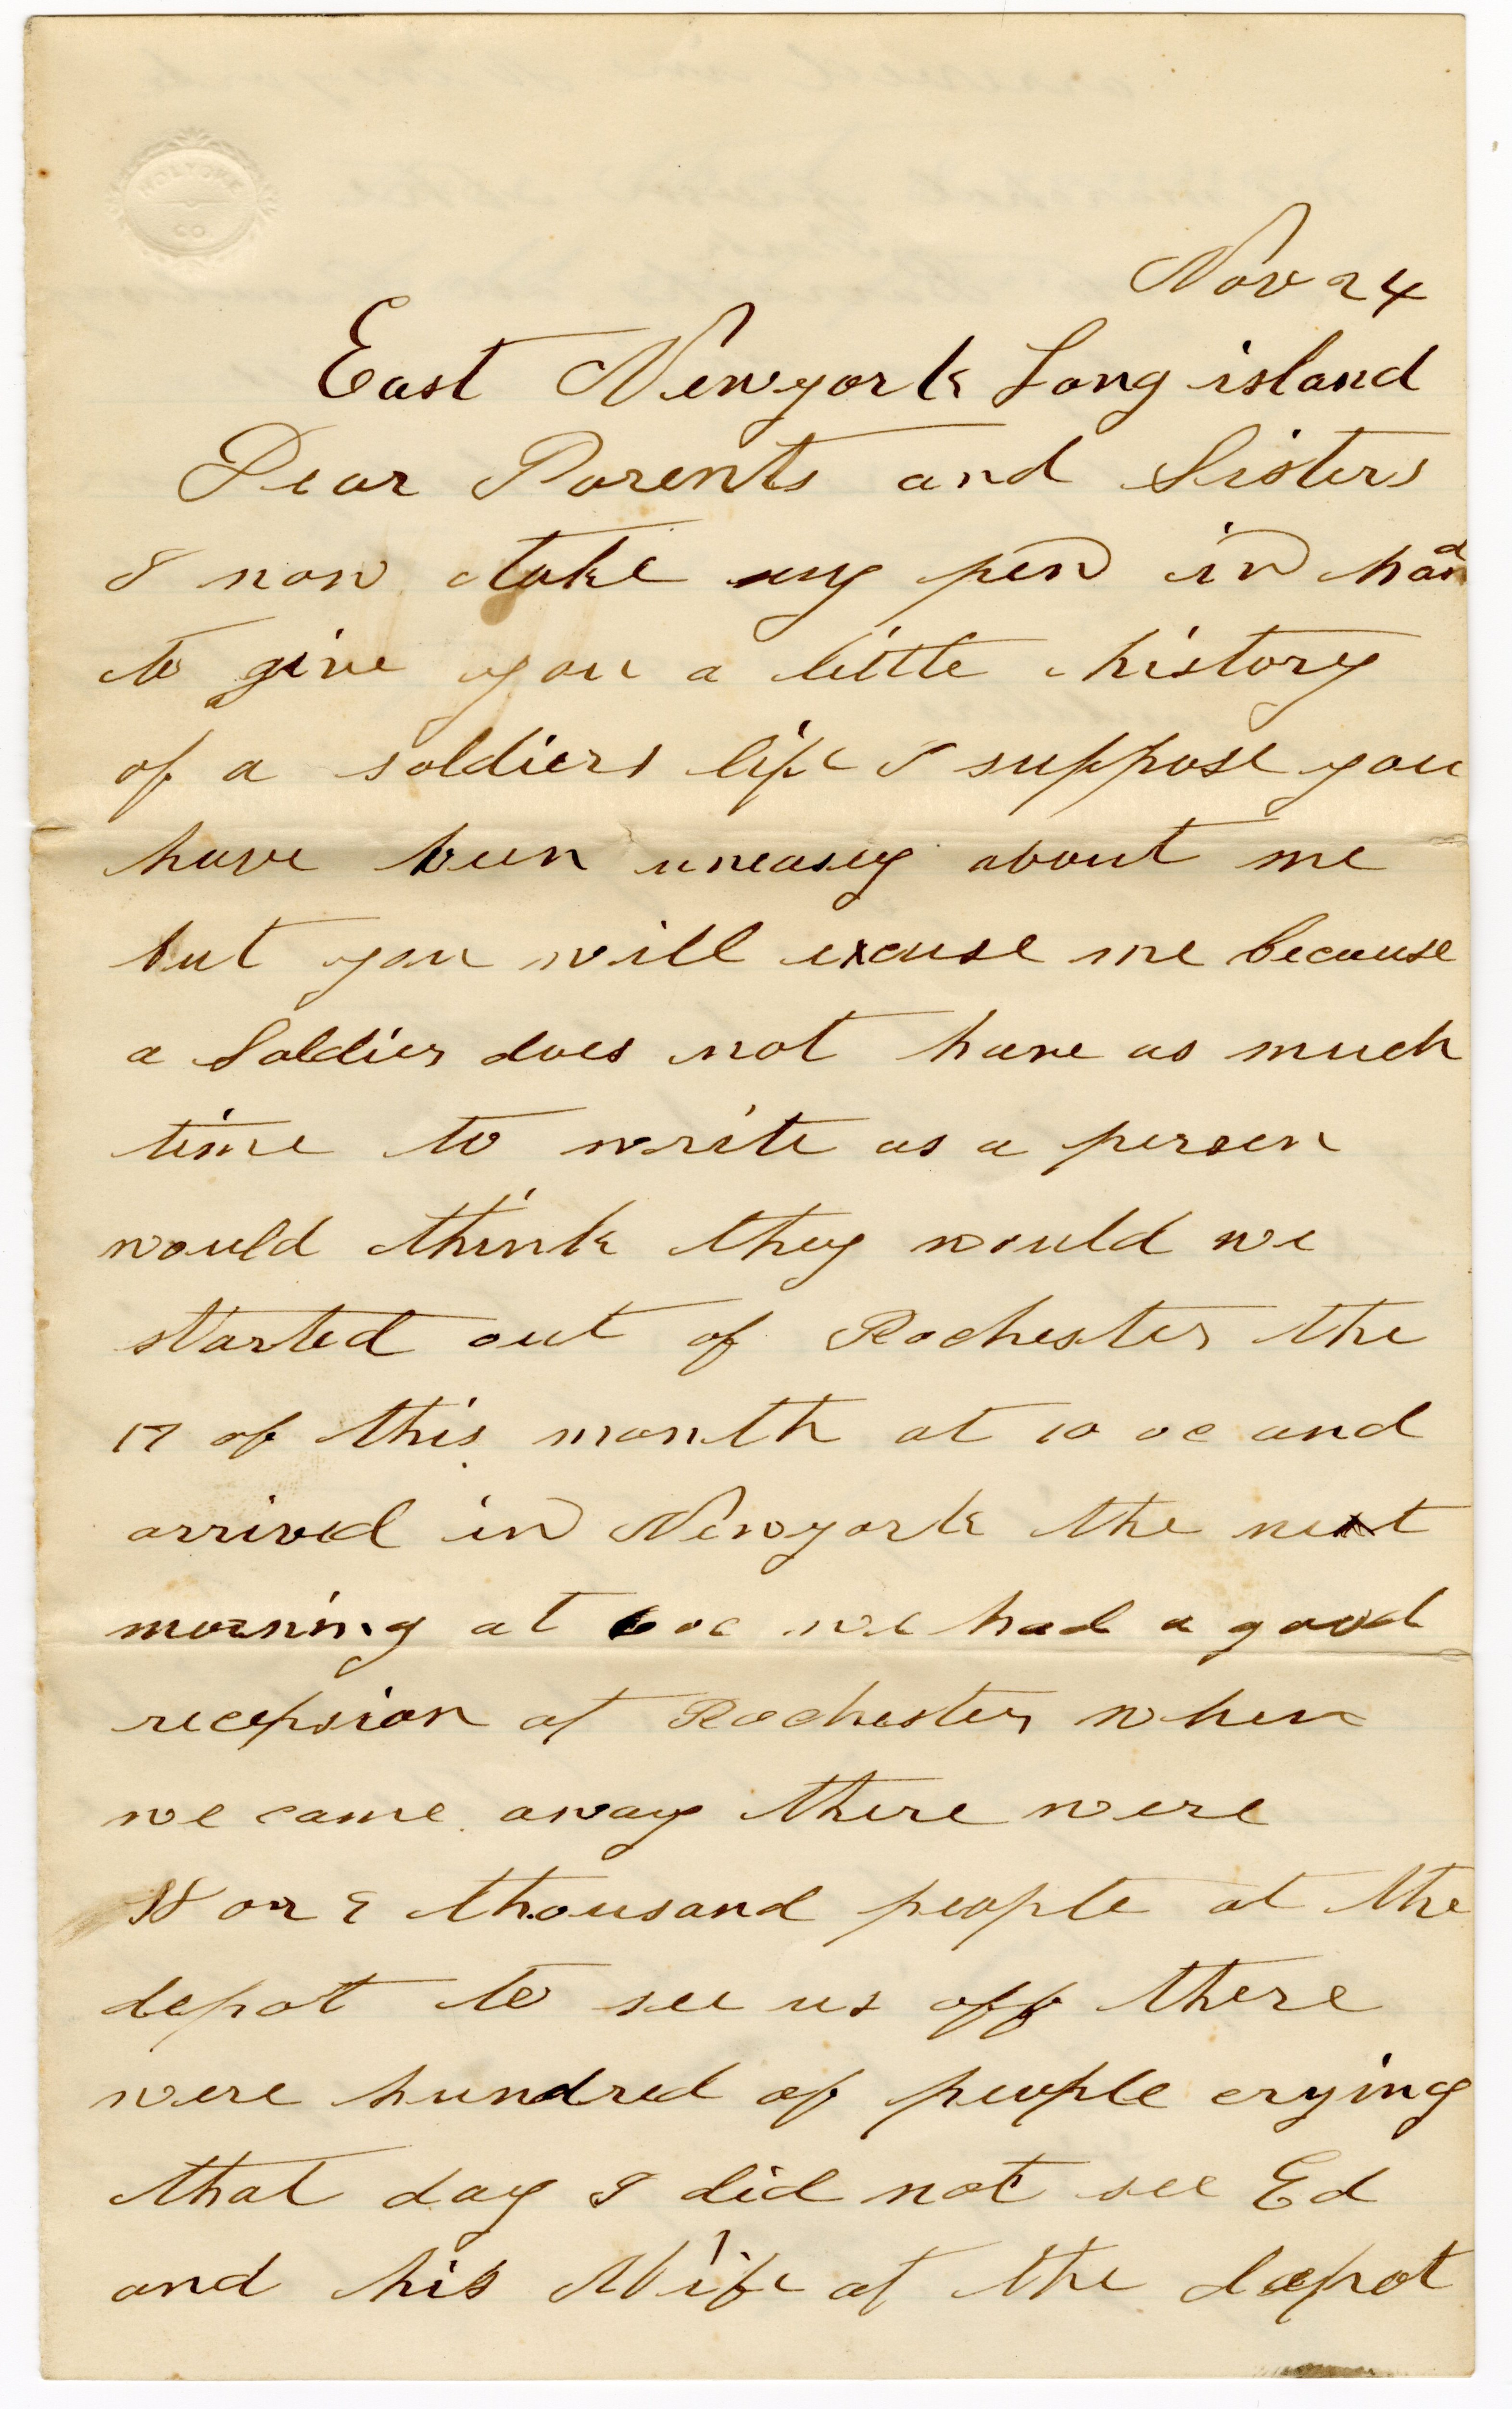 HOLYOKE
CO
Nov 24
East Newyork Long island
Dear Parents and Sisters
I now take my pen in hand
to give you a little history
of a soldiers life I suppose you
have been uneasy about me
but you will excuse me because
a Soldier does not have as much
time to write as a person
would think they would we
started out of Rochester the
17 of this month at 10 oc and
arrived in Newyork the next
morning at 6 oc we had a good
recepsion at Rochester when
we came away there were
or thousand people at the
depot to see us off there
were hundred of people crying
that day I did not see Ed
and his Wife at the depot